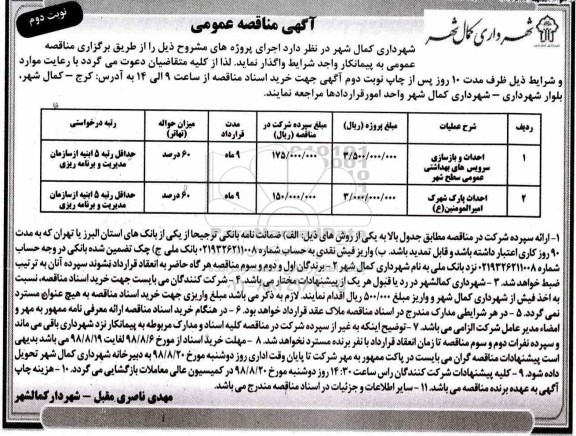 نوبت دوم
آگهی مناقصه عمومی
شهرداری کمال شهر
شهرداری کمال شهر در نظر دارد اجرای پروژه های مشروح ذیل را از طریق برگزاری مناقصه
عمومی به پیمانکار واجد شرایط واگذار نماید. لذا از کلیه متقاضیان دعوت می گردد با رعایت موارد
و شرایط ذیل ظرف مدت ۱۰ روز پس از چاپ نوبت دوم آگهی جهت خرید اسناد مناقصه از ساعت ۹ الی ۱۴ به آدرس: کرج – کمال شهر،
بلوار شهرداری – شهرداری کمال شهر واحد امورقراردادها مراجعه نمایند.
ردیف شرح عملیات مبلغ پروژه (ریال) مبلغ سپرده شرکت در مناقصه (ریال) مدت قرارداد میزان حواله (تهاتر) رتبه درخواستی
۱ احداث و بازسازی سرویس های بهداشتی عمومی سطح شهر ۳/۵۰۰/۰۰۰/۰۰۰ ۱۷۵/۰۰۰/۰۰۰ ۹ ماه ۶۰ درصد حداقل رتبه ۵ ابنیه از سازمان مدیریت و برنامه ریزی
۲ احداث پارک شهرک امیرالمومنین(ع) ۳/۰۰۰/۰۰۰/۰۰۰ ۱۵۰/۰۰۰/۰۰۰ ۹ ماه ۶۰ درصد حداقل رتبه ۵ ابنیه از سازمان مدیریت و برنامه ریزی
۱- ارائه سپرده شرکت در مناقصه مطابق جدول بالا به یکی از روش های ذیل: الف) ضمانت نامه بانکی ترجیحا از یکی از بانک های استان البرز یا تهران که به مدت
۹۰ روز کاری اعتبار داشته باشد و قابل تمدید باشد. ب) واریز فیش نقدی به حساب شماره ۰۲۱۹۳۳۶۲۱۱۰۰۸ بانک ملی ج) چک تضمین شده بانکی در وجه حساب
شماره ۰۲۱۹۳۳۶۲۱۱۰۰۸ نزد بانک ملی به نام شهرداری کمال شهر ۲- برندگان اول و دوم و سوم مناقصه هر گاه حاضر به انعقاد قرارداد نشوند سپرده آنان به ترتیب
ضبط خواهد شد. ۳- شهرداری کمالشهر در رد یا قبول هر یک از پیشنهادات مختار می باشد ۴- شرکت کنندگان می بایست جهت خرید اسناد مناقصه، نسبت
به اخذ فیش از شهرداری کمال شهر و واریز مبلغ ۵۰۰/۰۰۰ ریال اقدام نمایند. لازم به ذکر می باشد مبلغ واریزی جهت خرید اسناد مناقصه به هیچ عنوان مسترد
نمی گردد. ۵- در هر شرایطی مدارک مندرج در اسناد مناقصه ملاک عقد قرارداد خواهد بود. ۶- در هنگام خرید اسناد مناقصه ارائه معرفی نامه ممهور به مهر و
امضاء مدیر عامل شرکت الزامی می باشد. ۷- توضیح اینکه به غیر از سپرده شرکت در مناقصه کلیه اسناد و مدارک مربوطه به پیمانکار نزد شهرداری باقی می ماند
و سپرده نفرات دوم و سوم مناقصه تا زمان انعقاد قرارداد با نفر برنده مسترد نخواهد شد. ۸- مهلت خرید اسناد از مورخ ۹۸/۸/۶ لغایت ۹۸/۸/۱۹ می باشد بدیهی
است پیشنهادات مناقصه گران می بایست در پاکت ممهور به مهر شرکت تا پایان وقت اداری روز دوشنبه مورخ ۹۸/۸/۲۰ به دبیرخانه شهرداری کمال شهر تحویل
داده شود. ۹- کلیه پیشنهادات شرکت کنندگان راس ساعت ۱۴:۳۰ روز دوشنبه مورخ ۹۸/۸/۲۰ در کمیسیون عالی معاملات بازگشایی می گردد. ۱۰- هزینه چاپ
آگهی به عهده برنده مناقصه می باشد. ۱۱- سایر اطلاعات و جزئیات در اسناد مناقصه مندرج می باشد.
مهدی ناصری مقبل – شهردار کمالشهر